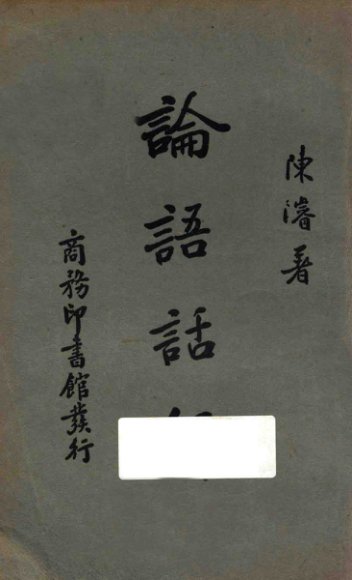 陳濬著
論語話
商務印書館發行